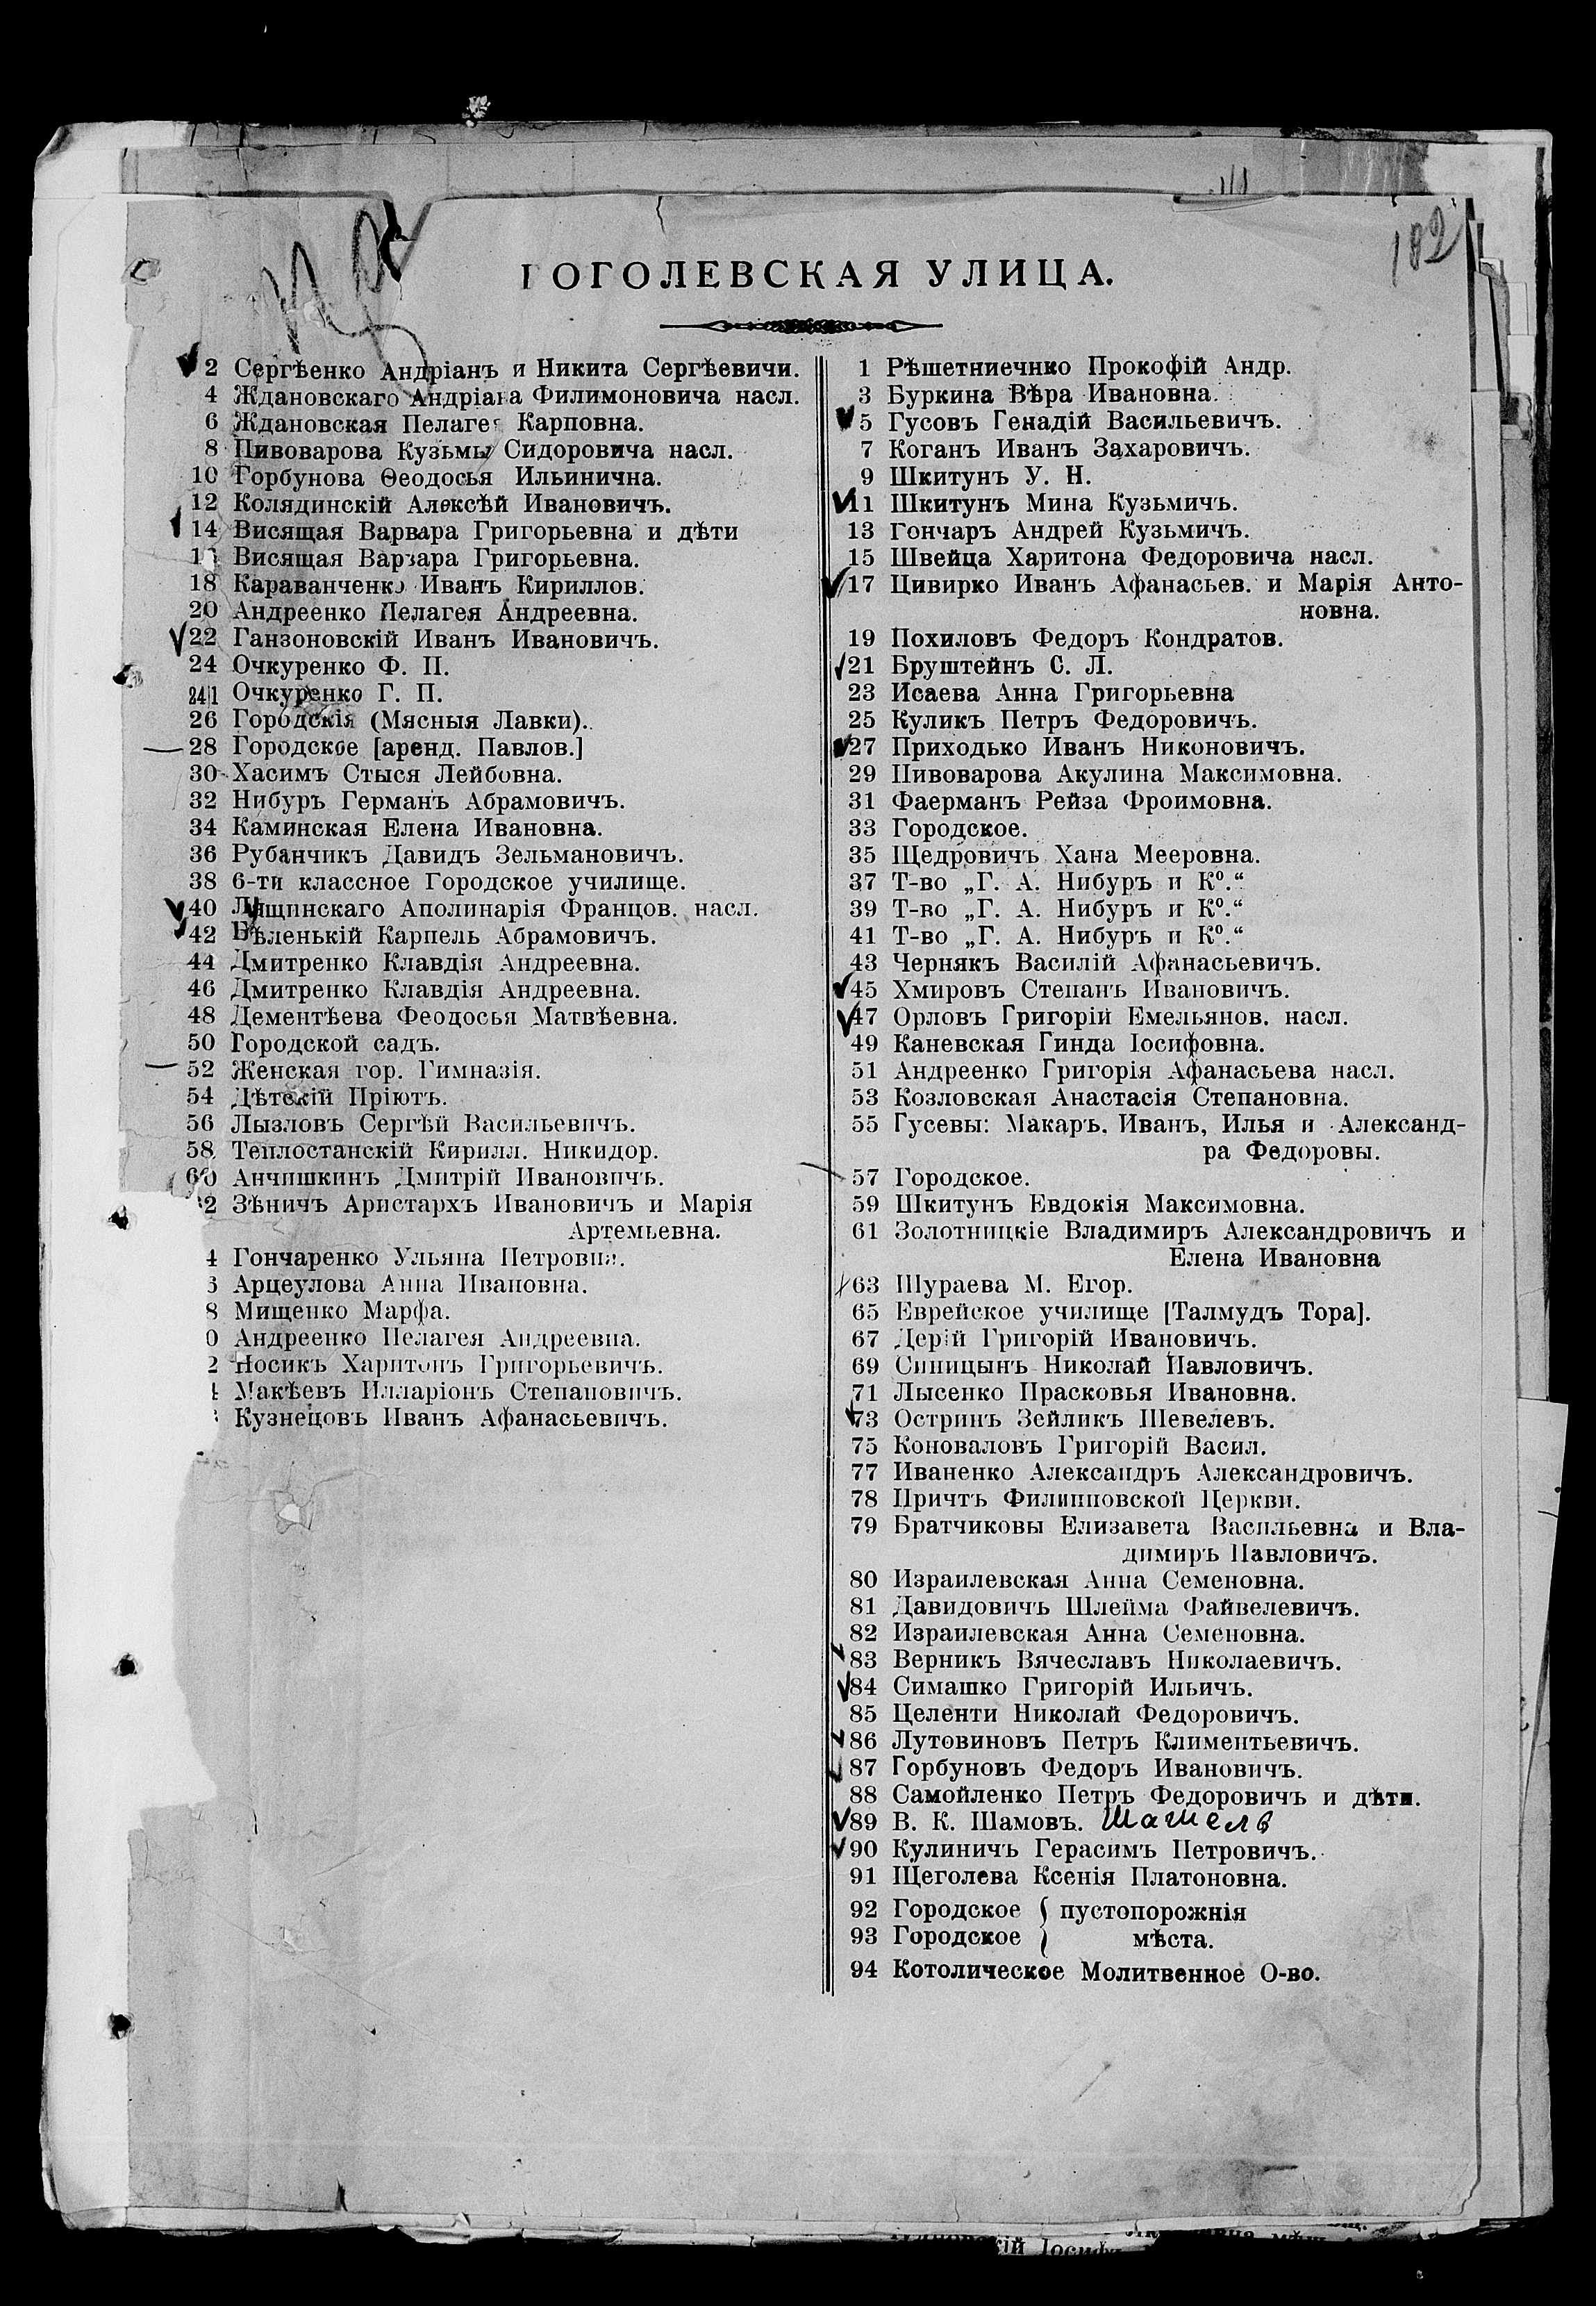 182
ГОГОЛЕВСКАЯ УЛИЦА.
2 Сергѣенко Андріанъ и Никита Сергѣевичи.
4 Ждановскаго Андріана Филимоновича насл.
6 Ждановская Пелагея Карповна.
8 Пивоварова Кузьмы Сидоровича насл.
10 Горбунова Ѳеодосья Ильинична.
12 Колядинскій Алексѣй Ивановичъ.
14 Висящая Варвара Григорьевна и дѣти
Висящая Варвара Григорьевна.
18 Караванченко Иванъ Кириллов.
20 Андреенко Пелагея Андреевна.
22 Ганзоновскій Иванъ Ивановичъ.
24 Очкуренко Ф. П.
24|1 Очкуренко Г. П.
26 Городскія (Мясныя Лавки).
28 Городское [аренд. Павлов.]
30 Хасимъ Стыся Лейбовна.
32 Нибуръ Германъ Абрамовичъ.
34 Каминская Елена Ивановна.
36 Рубанчикъ Давидъ Зельмановичъ.
38 6-ти классное Городское училище.
40 Лящинскаго Аполинарія Францов. насл.
42 Бѣленькій Карпель Абрамовичъ.
44 Дмитренко Клавдія Андреевна.
46 Дмитренко Клавдія Андреевна.
48 Дементѣева Феодосья Матвѣевна.
50 Городской садъ.
52 Женская гор. Гимназія.
54 Дѣтскій Пріютъ.
56 Лызловъ Сергѣй Васильевичъ.
58 Теплостанскій Кирилл. Никидор.
60 Анчишкинъ Дмитрій Ивановичъ.
2 Зѣничъ Аристархъ Ивановичъ и Марія
Артемьевна.
4 Гончаренко Ульяна Петровна.
6 Арцеулова Анна Ивановна.
8 Мищенко Марфа.
0 Андреенко Пелагея Андреевна.
2 Носикъ Харитонъ Григорьевичъ.
4 Макѣевъ Илларіонъ Степановичъ.
Кузнецовъ Иванъ Афанасьевичъ.
1 Рѣшетниечнко Прокофій Андр.
3 Буркина Вѣра Ивановна.
5 Гусовъ Генадій Васильевичъ.
7 Коганъ Иванъ Захаровичъ.
9 Шкитунъ У. Н.
11 Шкитунъ Мина Кузьмичъ.
13 Гончаръ Андрей Кузьмичъ.
15 Швейца Харитона Федоровича насл.
17 Цивирко Иванъ Афанасьев. и Марія Анто-
новна.
19 Похиловъ Федоръ Кондратов.
21 Бруштейнъ С. Л.
23 Исаева Анна Григорьевна
25 Куликъ Петръ Федоровичъ.
27 Приходько Иванъ Никоновичъ.
29 Пивоварова Акулина Максимовна.
31 Фаерманъ Рейза Фроимовна.
33 Городское.
35 Щедровичъ Хана Мееровна.
37 Т-во „Г. А. Нибуръ и К⁰.“
39 Т-во „Г. А. Нибуръ и К⁰.“
41 Т-во „Г. А. Нибуръ и К⁰.“
43 Чернякъ Василій Афанасьевичъ.
45 Хмировъ Степанъ Ивановичъ.
47 Орловъ Григорій Емельянов. насл.
49 Каневская Гинда Іосифовна.
51 Андреенко Григорія Афанасьева насл.
53 Козловская Анастасія Степановна.
55 Гусевы: Макаръ. Иванъ, Илья и Александ-
ра Федоровы.
57 Городское.
59 Шкитунъ Евдокія Максимовна.
61 Золотницкіе Владимиръ Александровичъ и
Елена Ивановна
63 Шураева М. Егор.
65 Еврейское училище [Талмудъ Тора].
67 Дерій Григорій Ивановичъ.
69 Синицынъ Николай Павловичъ.
71 Лысенко Прасковья Ивановна.
73 Остринъ Зейликъ Шевелевъ.
75 Коноваловъ Григорій Васил.
77 Иваненко Александръ Александровичъ.
78 Причтъ Филипповской Церкви.
79 Братчиковы Елизавета Васильевна и Вла-
димиръ Павловичъ.
80 Израилевская Анна Семеновна.
81 Давидовичъ Шлейма Файвелевичъ.
82 Израилевская Анна Семеновна.
83 Верникъ Вячеславъ Николаевичъ.
84 Симашко Григорій Ильичъ.
85 Целенти Николай Федоровичъ.
86 Лутовиновъ Петръ Климентьевичъ.
87 Горбуновъ Федоръ Ивановичъ.
88 Самойленко Петръ Федоровичъ и дѣти.
89 В. К. Шамовъ. Шашель
90 Кулиничъ Герасимъ Петровичъ.
91 Щеголева Ксенія Платоновна.
92 Городское { пустопорожнія
93 Городское } мѣста.
94 Котолическое Молитвенное О-во.